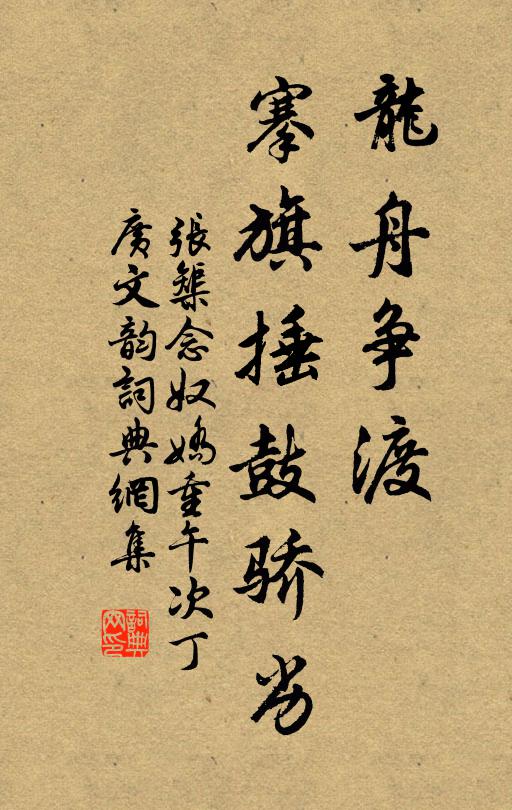 龍舟争渡
搴旗捶鼓骄劣
張榘念奴嬌重午次丁
廣文韵詞典網集
詞典網印